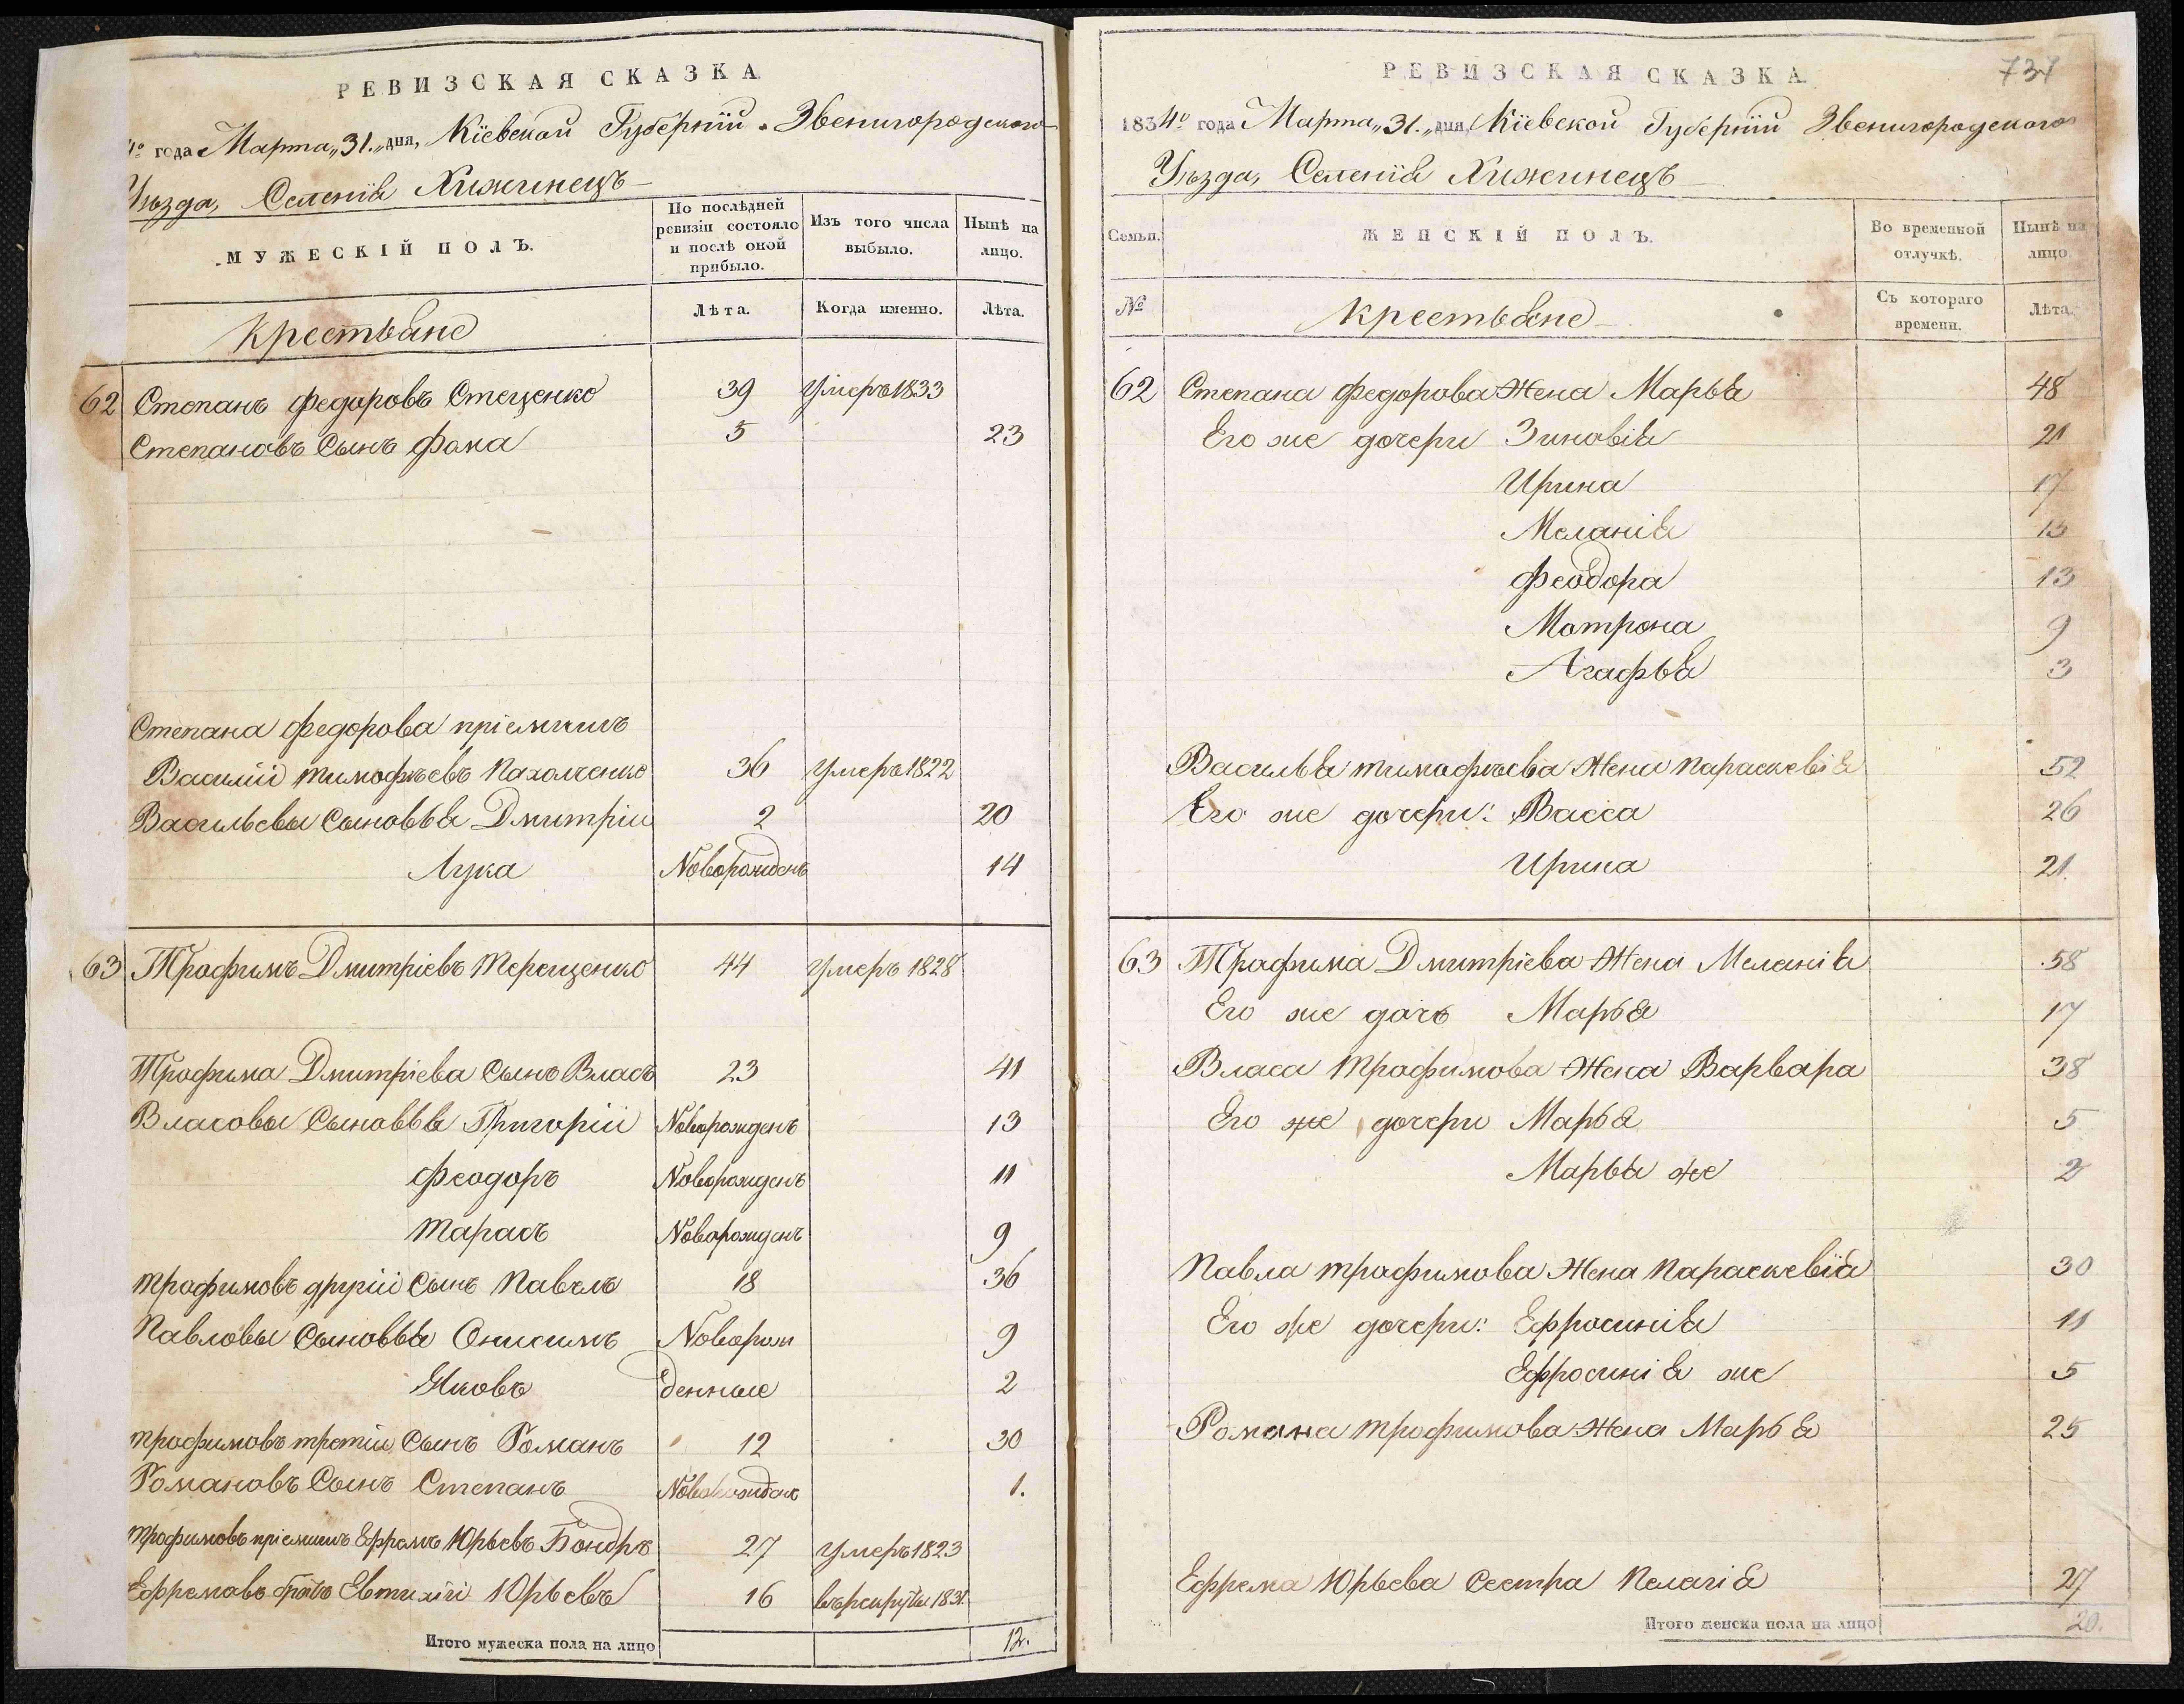 РЕВИЗСКАЯ СКАЗКА
4º года Марта „31. „ дня, Кіевской Губерніи Звенигородскаго
Уѣзда, Селенія Хижинецъ
МУЖЕСКІЙ ПОЛЪ.
По послѣдней ревизіи состояло и послѣ оной прибыло.
Изъ того числа выбыло.
Нынѣ на лицо.
Крестьяне
Лѣта.
Когда именно.
Лѣта.
62 Степанъ Федоровъ Стеценко 39 Умеръ 1833
Степановъ Сынъ Фома 5 23
Степана Федорова пріемишъ
Василій Тимофѣевъ Пахолченко 36 Умеръ 1822
Васильевы Сыновья Дмитрій 2 20
Лука Новорожденъ 14
63 Трофимъ Дмитріевъ Терещенко 44 Умеръ 1828
Трофима Дмитріева Сынъ Власъ 23 41
Власовы Сыновья Григорій Новорожденъ 13
Феодоръ Новорожденъ 11
Тарасъ Новорожденъ 9
Трофимовъ другій Сынъ Павелъ 18 36
Павловы Сыновья Онисимъ Новорож 9
Яковъ денные 2
Трофимовъ третій Сынъ Романъ 12 30
Романовъ Сынъ Степанъ 1.
Трофимовъ пріемишъ Ефремъ Юрьевъ Бондръ 27 Умеръ 1823
Ефремовъ братъ Евтихій Юрьевъ 16 въ рекруты 1831.
Итого мужеска пола на лицо 12.
РЕВИЗСКАЯ СКАЗКА
1834º года Марта „31. „ дня, Кіевской Губерніи Звенигородскаго
Уѣзда, Селенія Хижинецъ
Семьи.
ЖЕНСКІЙ ПОЛЪ.
Во временной отлучкѣ.
Нынѣ на лицо
№
Крестьяне
Съ котораго времени.
Лѣта.
62 Степана Федорова Жена Марья 48
Его же дочери Зиновія 21
Ирина 17
Меланія 15
Феодора 13
Мотрона 9
Агафья 3
Василья Тимофѣева Жена Параскевія 52
Его же дочери: Васса 26
Ирина 21.
63 Трофима Дмитріева Жена Меланія 58
Его же дочь Марья 17
Власа Трофимова Жена Варвара 38
Его же дочери Марья 5
Марья же 2
Павла Трофимова Жена Параскевія 30
Его же дочери: Ефросинія 11
Ефросинія же 5
Романа Трофимова Жена Марья 25
Ефрема Юрьева Сестра Пелагія 27
Итого женска пола на лицо 20.